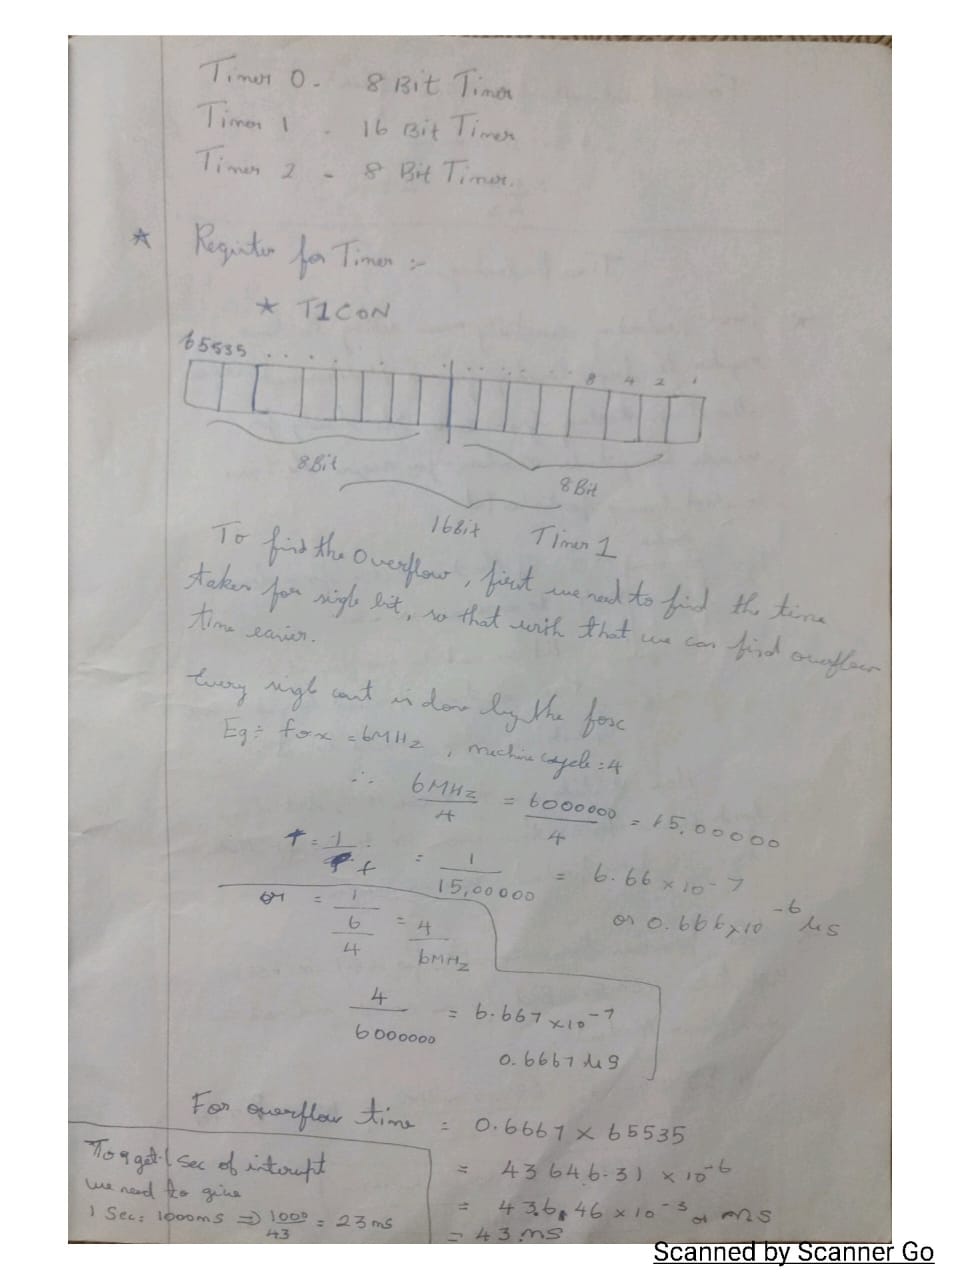 Timer 0 - 8 Bit Timer
Timer 1 - 16 Bit Timer
Timer 2 - 8 Bit Timer.
* Register for Timer :-
* T1CON
65535 . . . . . . . . . . 8 4 2 1
8Bit 8Bit
16Bit Timer 1
To find the Overflow, first we need to find the time
taken for single bit, so that with that we can find overflow
time easier.
Every singl count is done by the fosc
Eg:- fox = 6MHz, machine cycle : 4
∴ 6MHz/4 = 6000000/4 = 15,00000
T = 1/f = 1/15,00000 = 6.66 x 10-7
or 0.666x10-6 μs
or = 1/6/4 = 4/6MHz
4/6000000 = 6.667 x10-7
0.6667 μs
For overflow time = 0.6667 x 65535
= 43646.31 x 10-6
= 436.46 x 10-3 or ms
= 43 ms
To get 1 Sec of interupt
we need to give
1 Sec = 1000ms => 1000/43 = 23ms
Scanned by Scanner Go